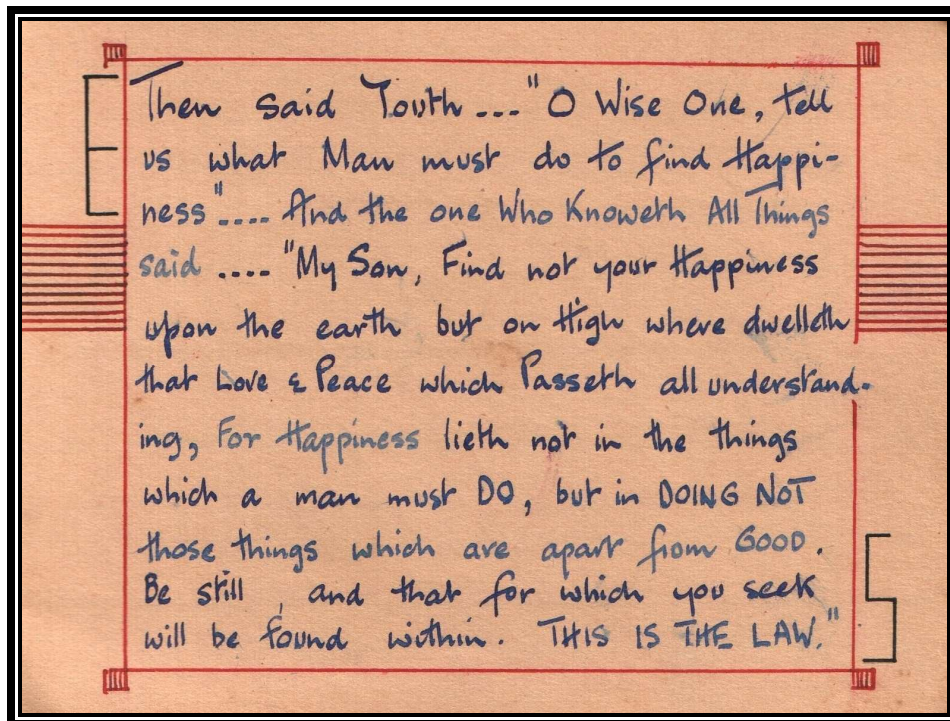 Then said Youth ... "O Wise One, tell
us what Man must do to find Happi-
ness".... And the one Who Knoweth All Things
said .... "My Son, Find not your Happiness
upon the earth but on High where dwelleth
that Love & Peace which Passeth all understand-
ing, For Happiness lieth not in the things
which a man must DO, but in DOING NOT
those things which are apart from GOOD.
Be still, and that for which you seek
will be found within. THIS IS THE LAW."